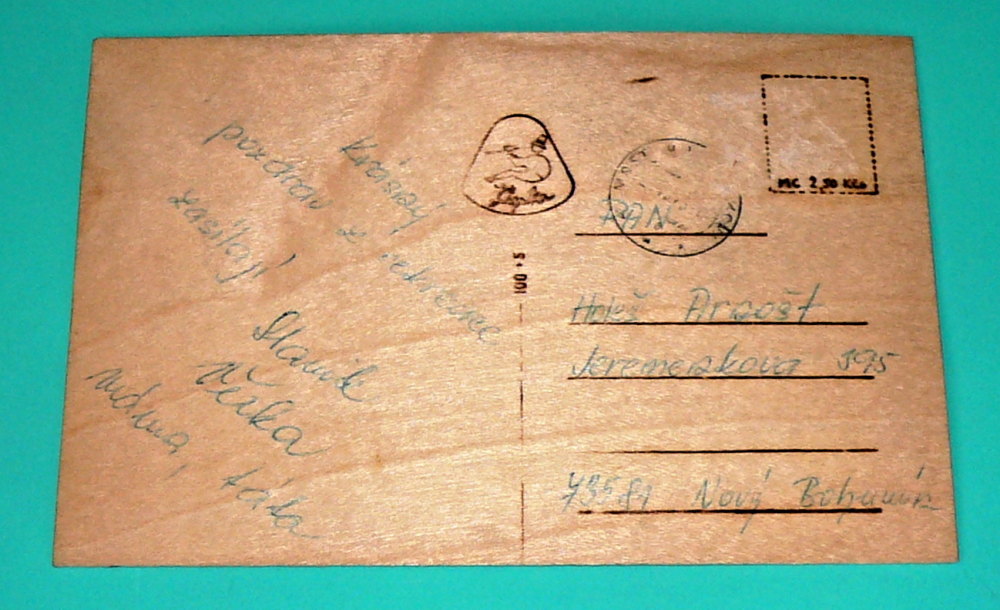 Krásný
pozdrav z rekreace
zasílají
Slavík
Věrka
máma, táta
100 + 5
MC 2,50 Kčs
PAN
Holeš Arnošt
Jeremenkova 395
73581 Nový Bohumín